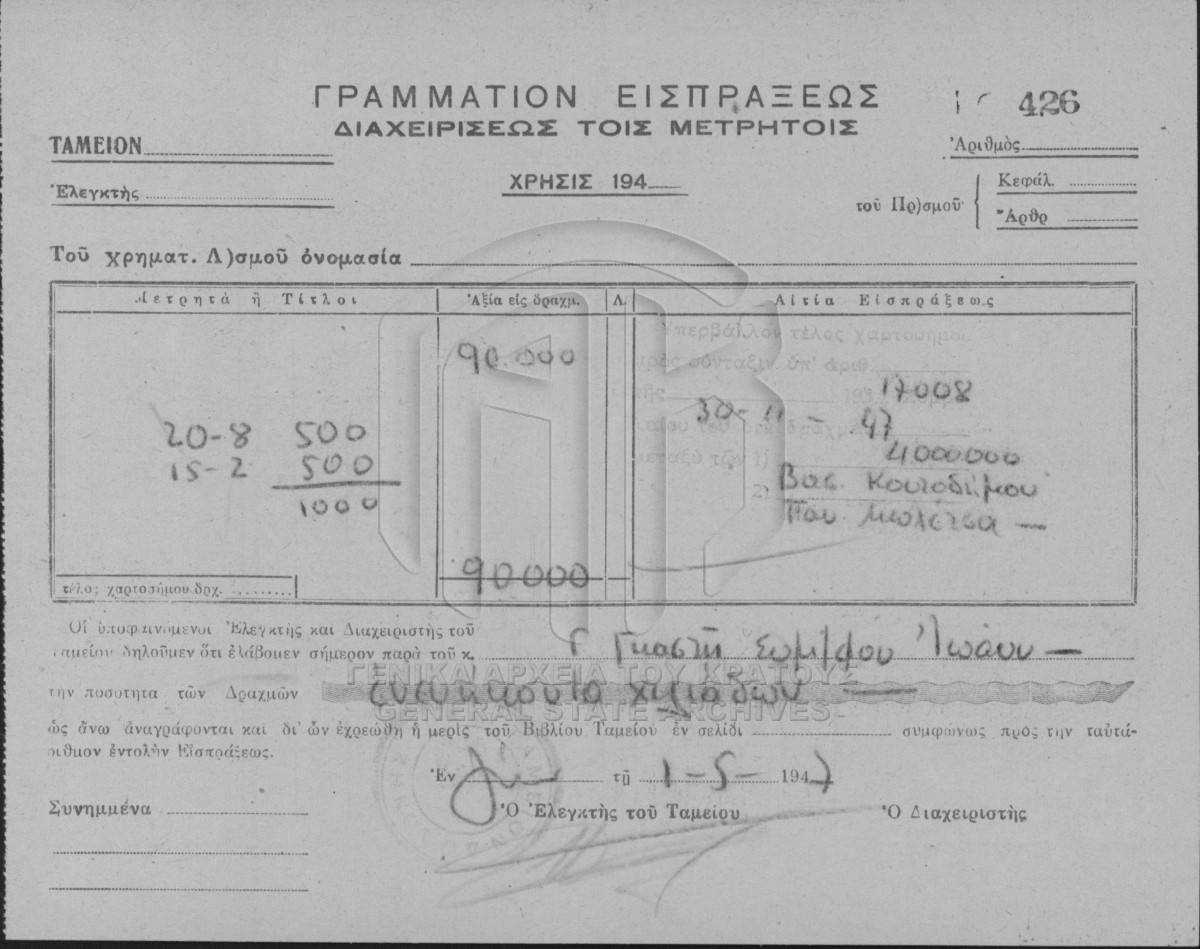 ΓΡΑΜΜΑΤΙΟΝ ΕΙΣΠΡΑΞΕΩΣ
426
ΔΙΑΧΕΙΡΙΣΕΩΣ ΤΟΙΣ ΜΕΤΡΗΤΟΙΣ
ΤΑΜΕΙΟΝ
Ἀριθμὸς
Ἐλεγκτὴς
ΧΡΗΣΙΣ 194
τοῦ Πρ)σμοῦ
Κεφάλ.
Ἄρθρ
Τοῦ χρηματ. Λ)σμοῦ ὀνομασία
Μετρητὰ ἢ Τίτλοι
Ἀξία εἰς δραχμ.
Λ.
Αἰτία Εἰσπράξεως
Ὑπερβάλλον τέλος χαρτοσήμου
90.000
πρὸς σύνταξιν ὑπ' ἀριθ.
τῆς 193
17008
30-11- 47
20-8 500
μεταξὺ τῶν 1)
4000000
15-2 500
2)
Βασ. Κουτοδήμου
1000
90000
τέλος χαρτοσήμου δρχ.
Οἱ ὑποφαινόμενοι Ἐλεγκτὴς καὶ Διαχειριστὴς τοῦ
Ταμείου δηλοῦμεν ὅτι ἐλάβομεν σήμερον παρὰ τοῦ κ. Ἰωάνν
ΓΕΝΙΚΑ ΑΡΧΕΙΑ ΤΟΥ ΚΡΑΤΟΥΣ
τὴν ποσότητα τῶν Δραχμῶν ἐνενήκοντα χιλιάδων
GENERAL STATE ARCHIVES
ὡς ἄνω ἀναγράφονται καὶ δι' ὧν ἐχρεώθη ἡ μερὶς τοῦ Βιβλίου Ταμείου ἐν σελίδι συμφώνως πρὸς τὴν ταὐτά-
ριθμον ἐντολὴν Εἰσπράξεως.
Ἐν τῇ 1-5- 1947
Συνημμένα
Ὁ Ἐλεγκτὴς τοῦ Ταμείου
Ὁ Διαχειριστὴς